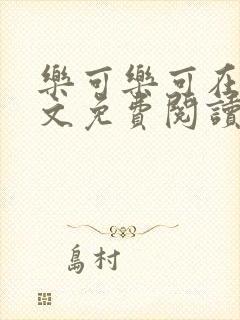 樂可樂可在
文免費閱讀
島村